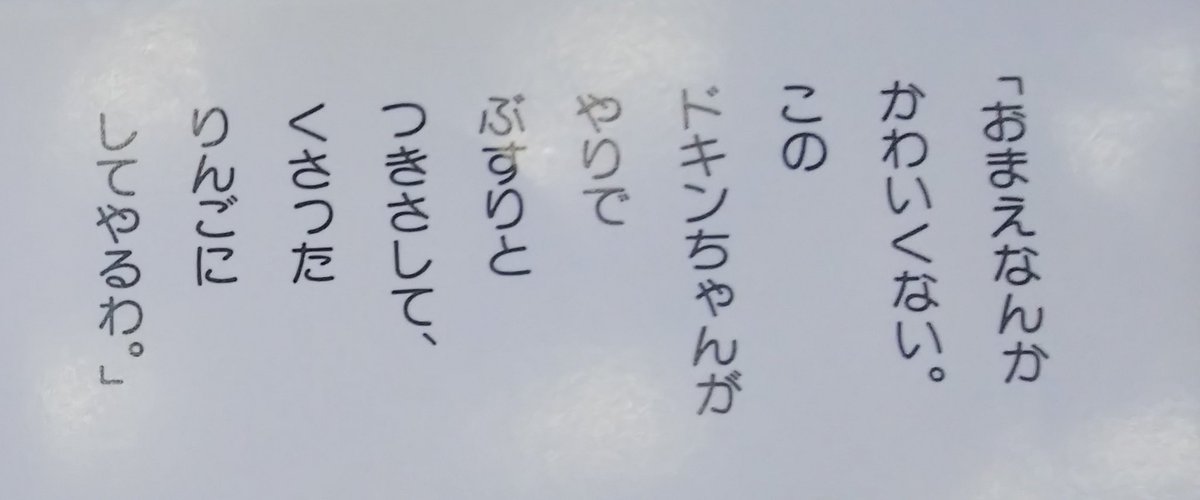 「おまえなんか
かわいくない。
この
ドキンちゃんが
やりで
ぶすりと
つきさして、
くさった
りんごに
してやるわ。」